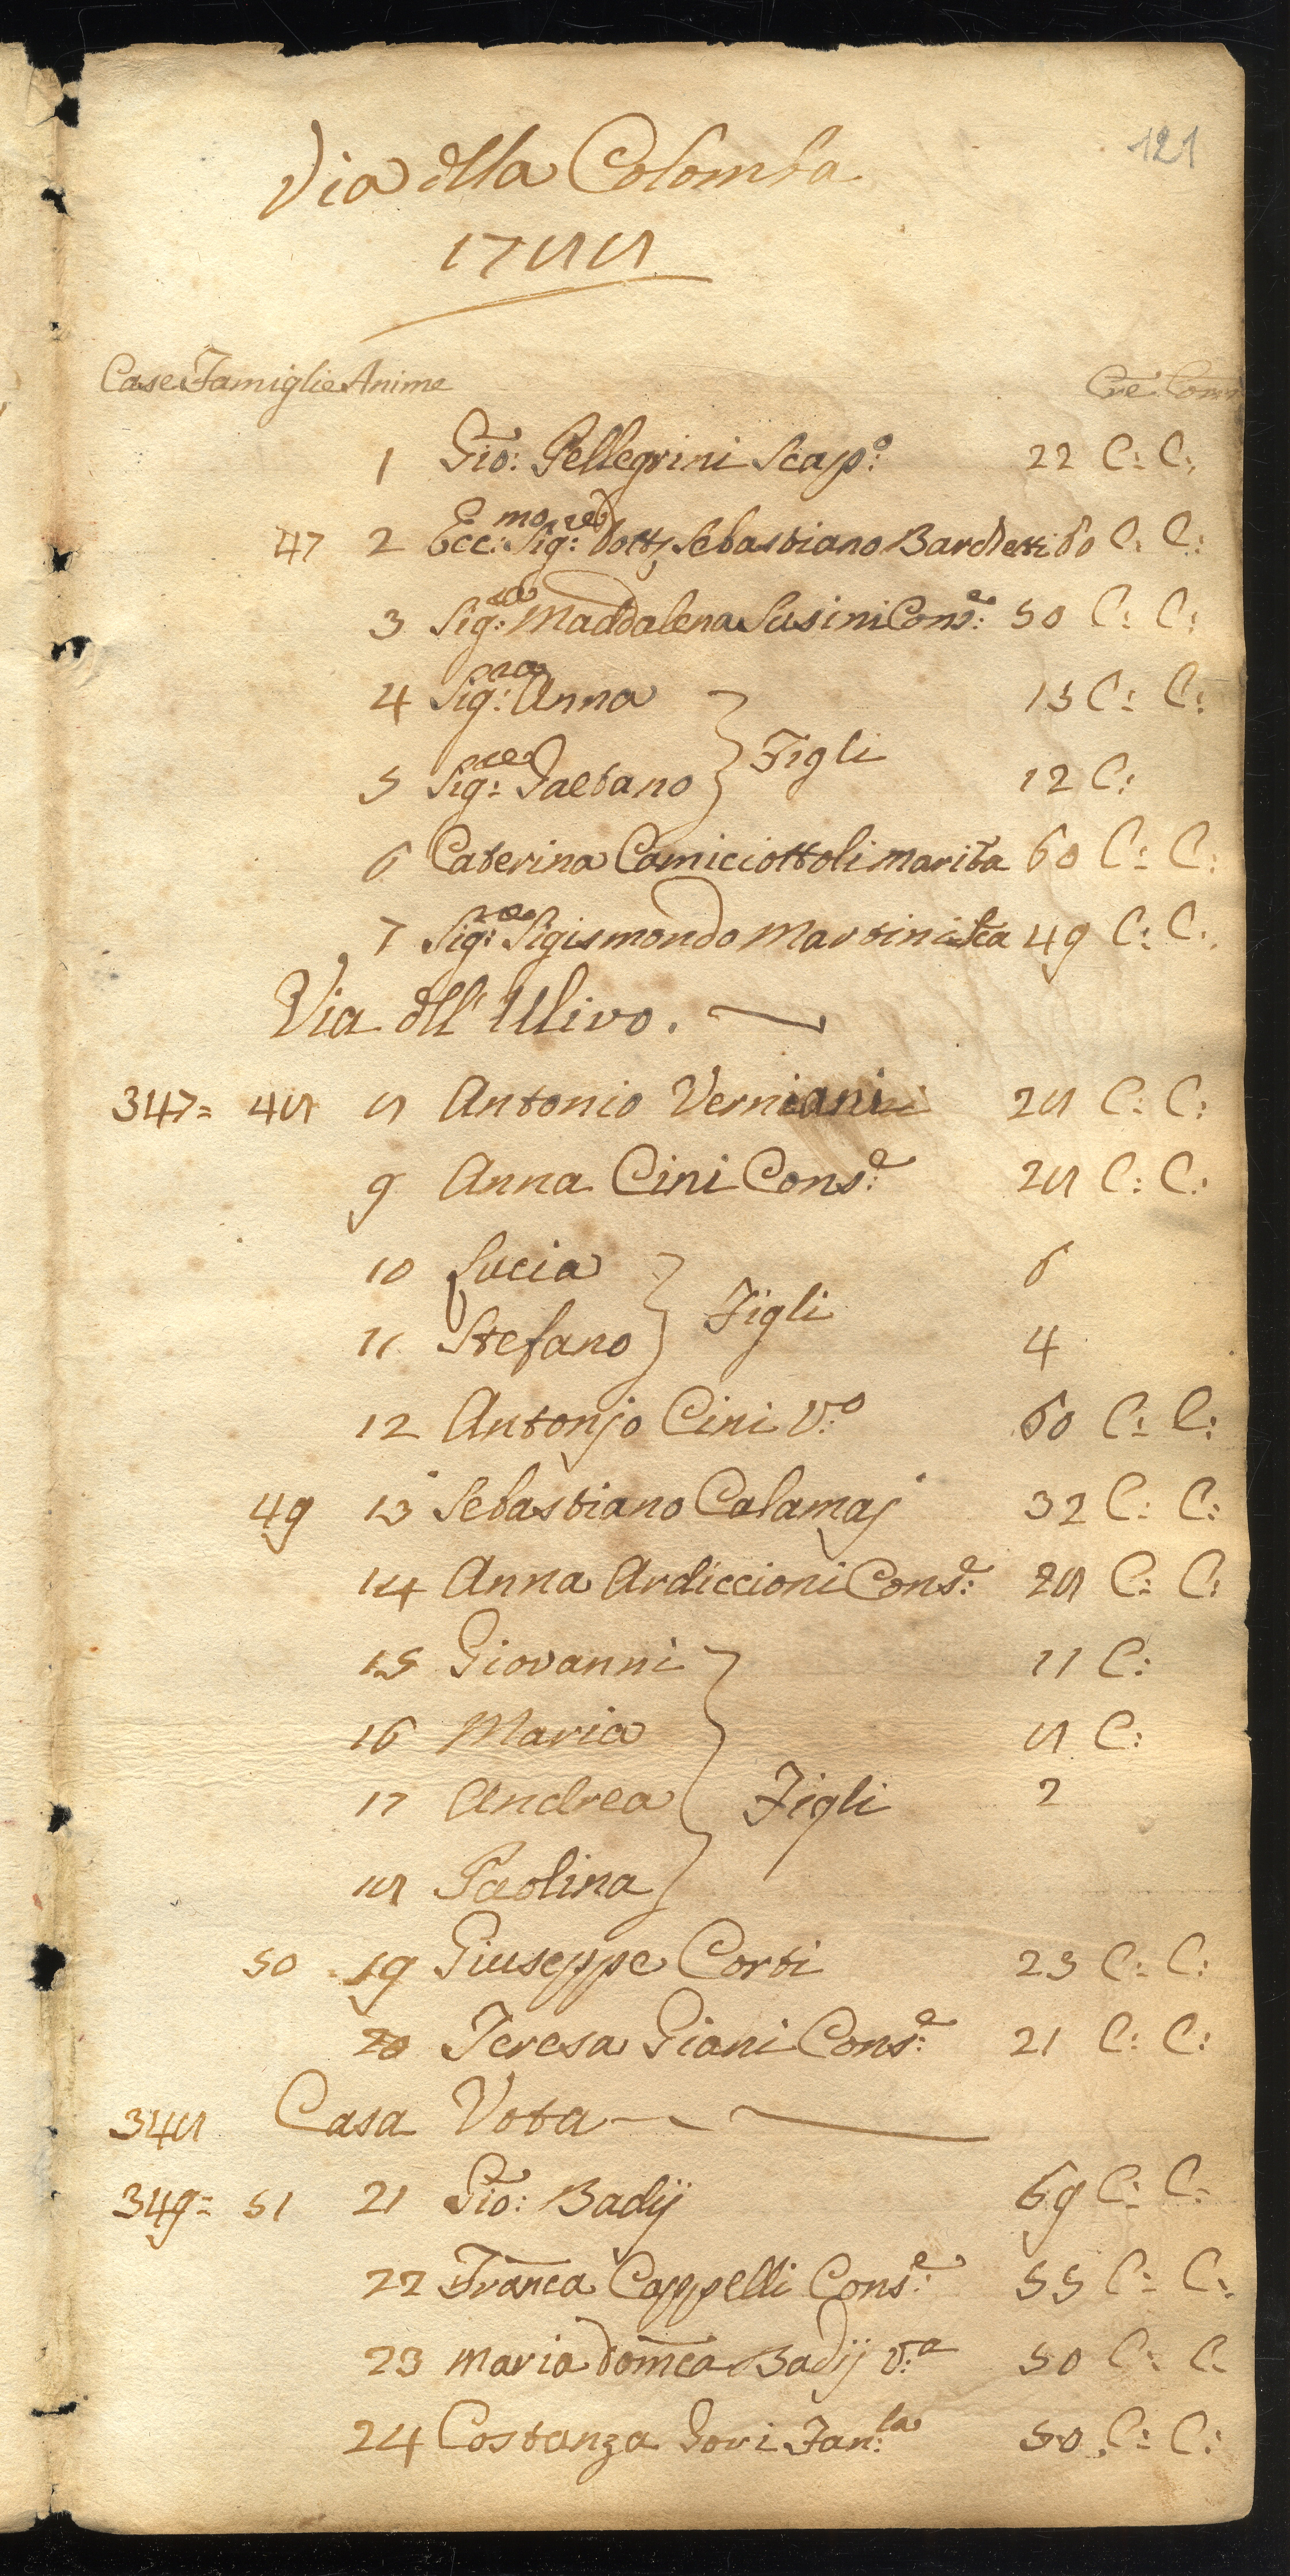 121
Via dlla Colomba
1788
Case Famiglie Anime Cre Com
1 Gio: Pellegrini Scap:o 22 C: C:
47 2 Ecc:mo Sig:re Dott. Sebastiano Barchetti 60 C: C:
3 Sig:ra Maddalena Susini Cons:e 50 C: C:
4 Sig:ra Anna 15 C: C:
Figli
5 Sig:re Gaetano 12 C:
6 Caterina Camiciottoli marita 60 C: C:
7 Sig:re Sigismondo Martini 49 C: C:
Via dll' Ulivo.
347= 48 8 Antonio Verniani 28 C: C:
9 Anna Cini Cons:e 28 C: C:
10 Lucia 6
Figli
11 Stefano 4
12 Antonjo Cini V:o 60 C: C:
49 13 Sebastiano Calamaj 32 C: C:
14 Anna Ardiccioni Cons:e 28 C: C:
15 Giovanni 11 C:
16 Maria 8 C:
17 Andrea Figli 2
18 Paolina
50 19 Giuseppe Corti 23 C: C:
20 Teresa Giani Cons:e 21 C: C:
348 Casa Vota
349= 51 21 Gio: Badij 69 C: C:
22 Franca Cappelli Cons:e 55 C: C:
23 Maria Domca Badij V:a 50 C: C:
24 Costanza Gori Fan:la 50 C: C: